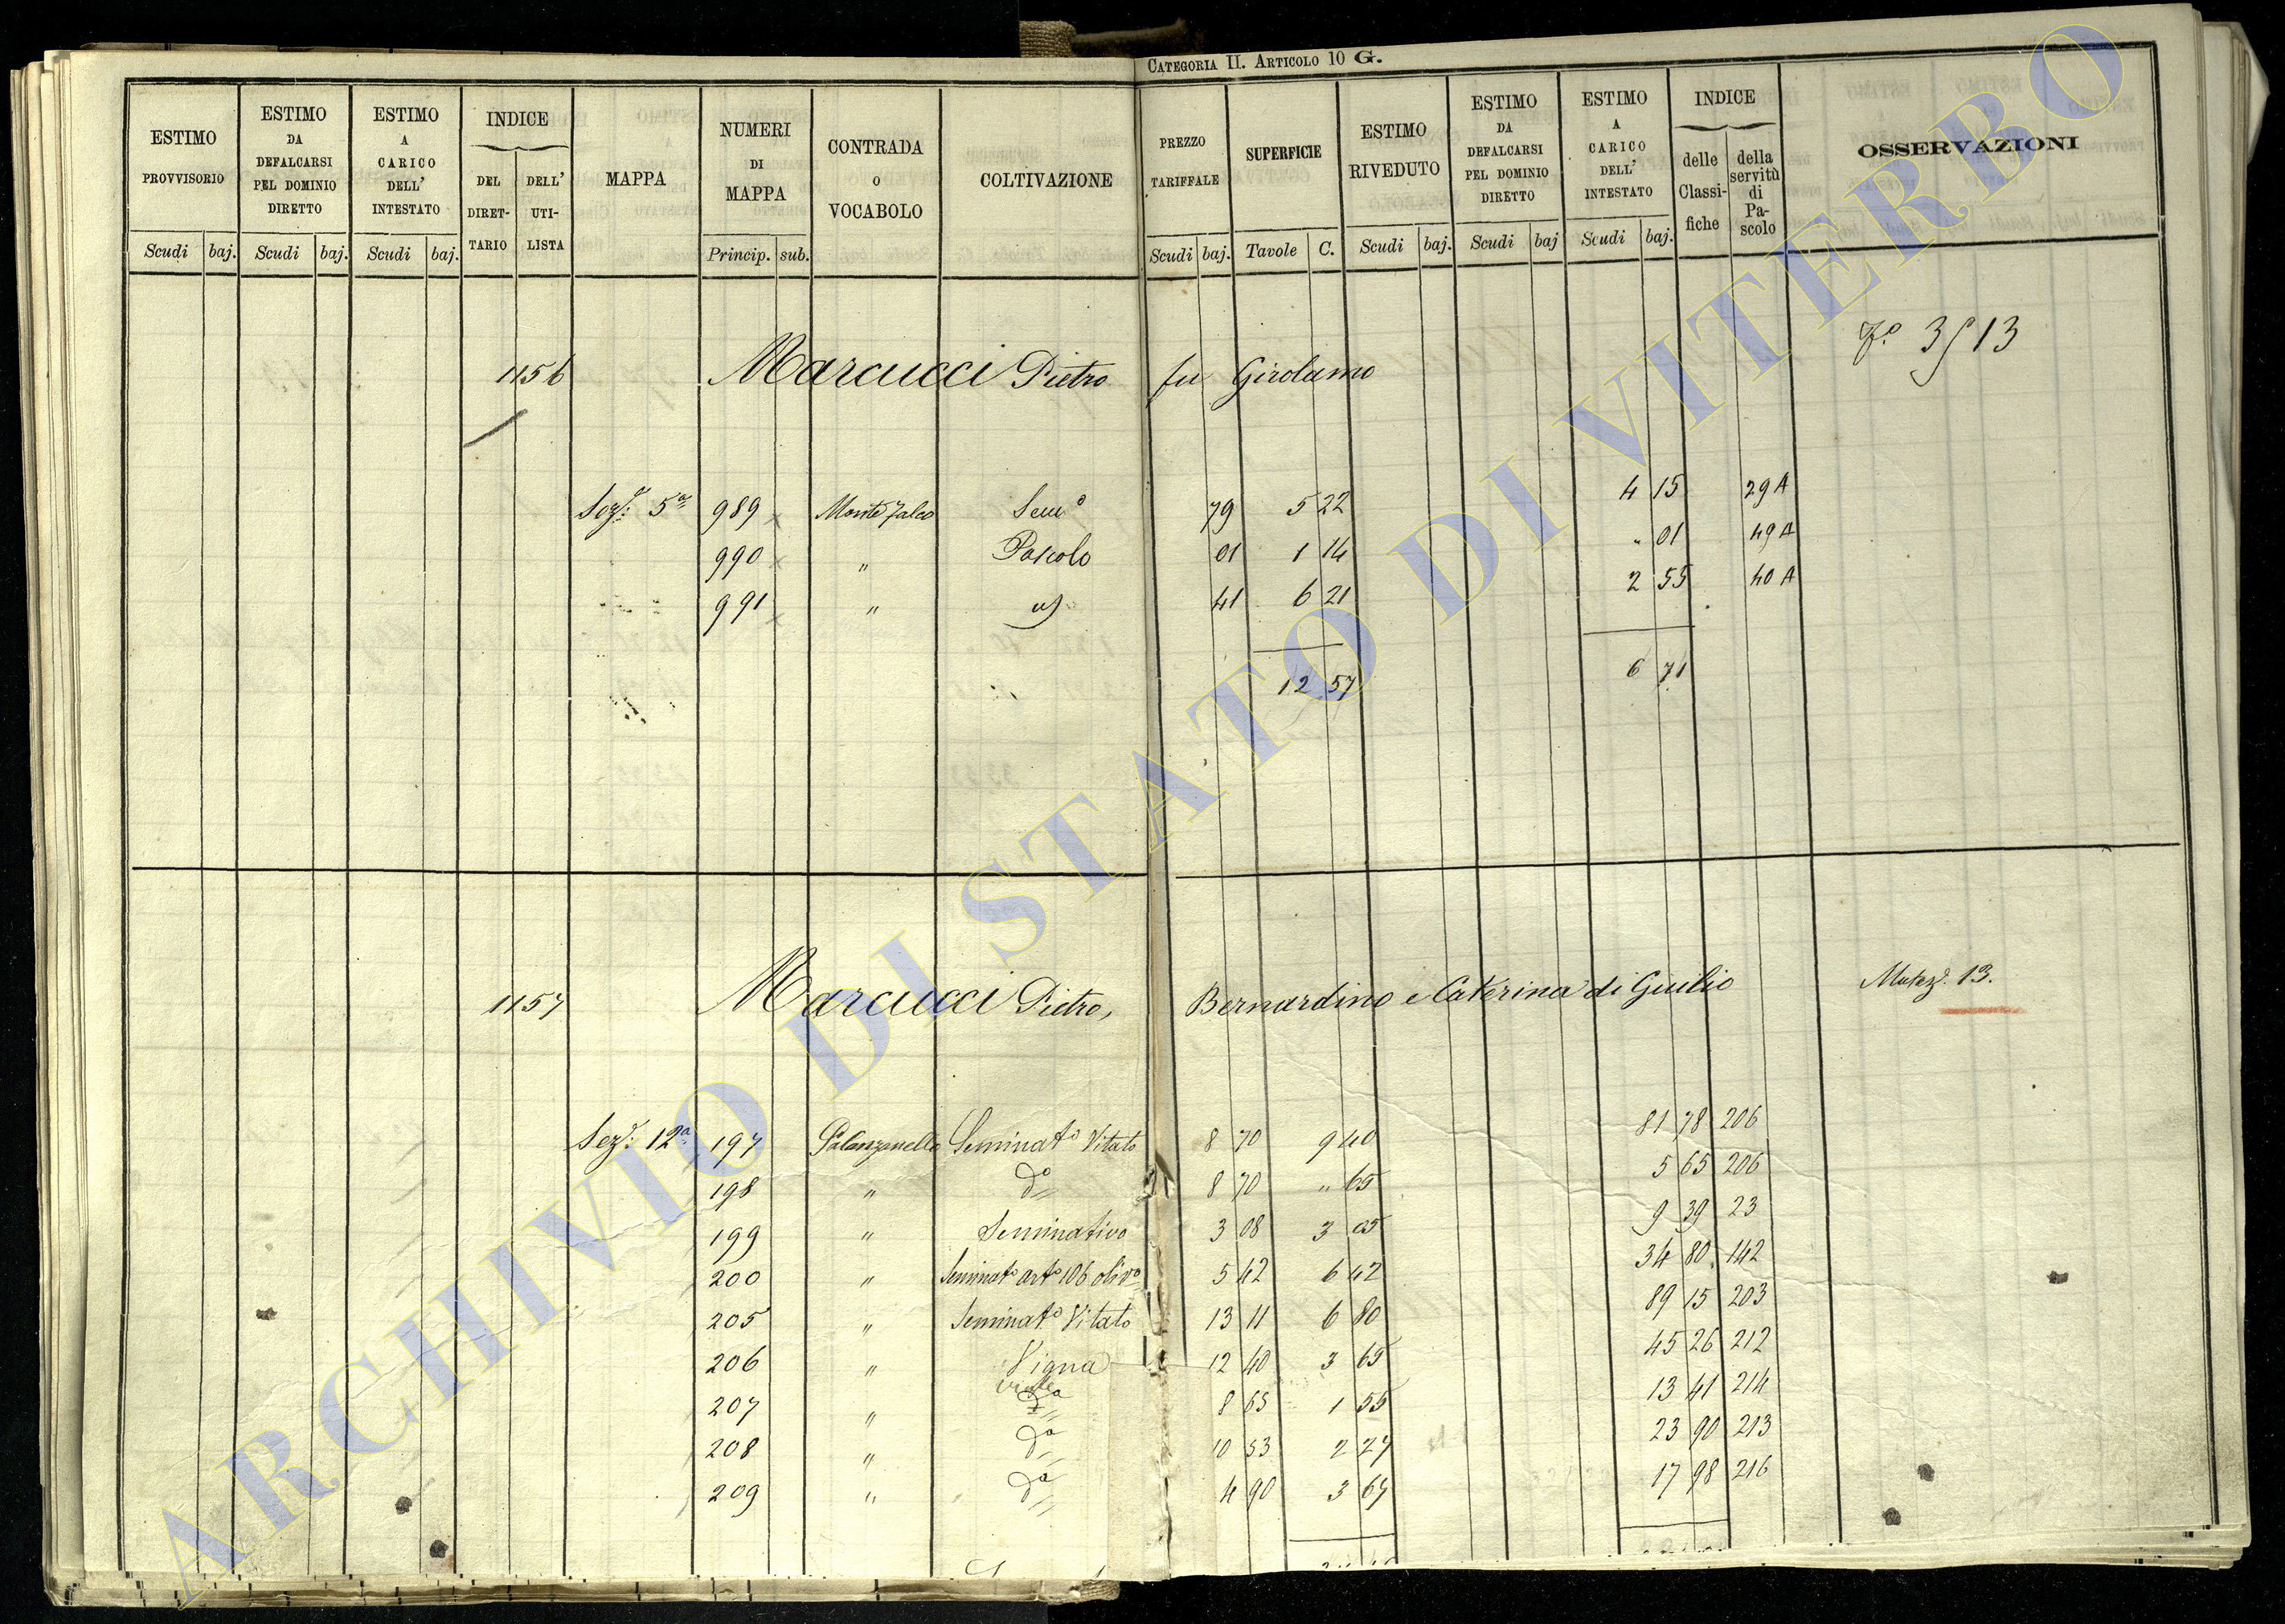 CATEGORIA II. ARTICOLO 10 G.
ESTIMO PROVVISORIO
ESTIMO DA DEFALCARSI PEL DOMINIO DIRETTO
ESTIMO A CARICO DELL' INTESTATO
INDICE
DEL DIRETTARIO
DELL' UTILISTA
MAPPA
NUMERI DI MAPPA
CONTRADA O VOCABOLO
COLTIVAZIONE
PREZZO TARIFFALE
SUPERFICIE
ESTIMO RIVEDUTO
ESTIMO DA DEFALCARSI PEL DOMINIO DIRETTO
ESTIMO A CARICO DELL' INTESTATO
INDICE
delle Classifiche
della servitù di Pascolo
OSSERVAZIONI
Scudi baj. Scudi baj. Scudi baj. Princip. sub. Scudi baj. Tavole C. Scudi baj. Scudi baj Scudi baj.
1156 Marcucci Pietro fu Girolamo 3 13
Sezᵉ: 5ª 989 Monte Falco Semº 79 5 22 4 15 29 A
990 " Pascolo 01 1 14 " 01 49 A
991 " 41 6 21 2 55 40 A
12 57 6 71
1157 Marcucci Pietro, Bernardino e Caterina di Giulio 13.
Sezᵉ: 12ª 197 Palanzanello Seminatº Vitato 8 70 9 40 81 78 206
198 " dº 8 70 " 65 5 65 206
199 " Seminativo 3 08 3 05 9 39 23
200 " Seminatº artº 106 olivº 5 42 6 42 34 80 142
205 " Seminatº Vitato 13 11 6 80 89 15 203
206 " Vigna 12 40 3 65 45 26 212
207 " dª 8 65 1 55 13 41 214
208 " dª 10 53 2 27 23 90 213
209 " dª 4 90 3 67 17 98 216
ARCHIVIO DI STATO DI VITERBO